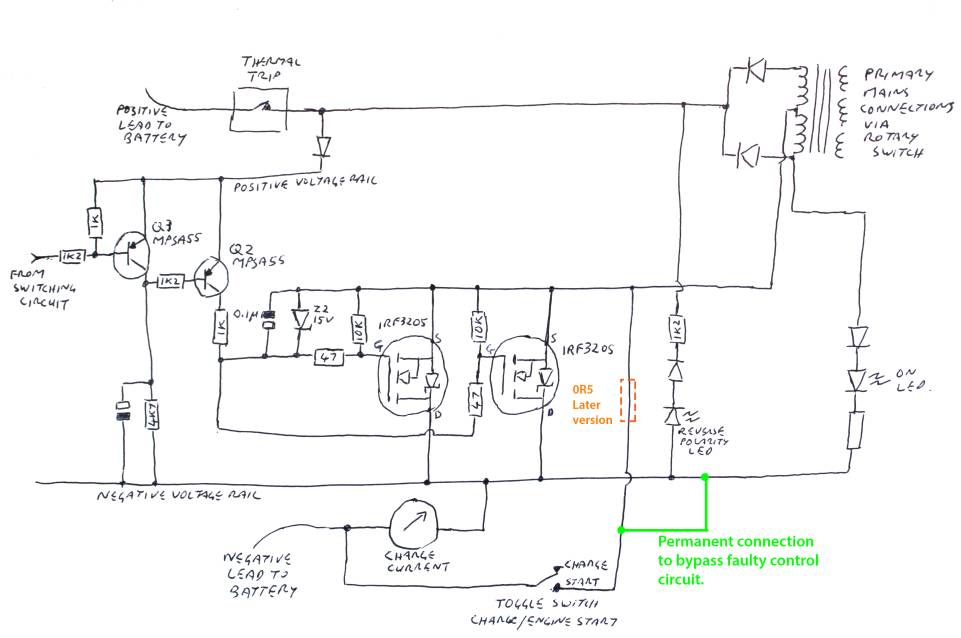 THERMAL
TRIP
POSITIVE
LEAD TO
BATTERY
PRIMARY
MAINS
CONNECTIONS
VIA
ROTARY
SWITCH
POSITIVE VOLTAGE RAIL
1K
Q3
MPSA55
1K2
FROM
SWITCHING
CIRCUIT
Q2
MPSA55
1K2
1K
0.1µ
Z2
15V
10K
47
IRF3205
G
S
D
10K
G
47
IRF3205
S
D
0R5
Later
version
1K2
REVERSE
POLARITY
LED
ON
LED.
4K7
NEGATIVE VOLTAGE RAIL
NEGATIVE
LEAD TO
BATTERY
CHARGE
CURRENT
CHARGE
START
TOGGLE SWITCH
CHARGE/ENGINE START
Permanent connection
to bypass faulty control
circuit.